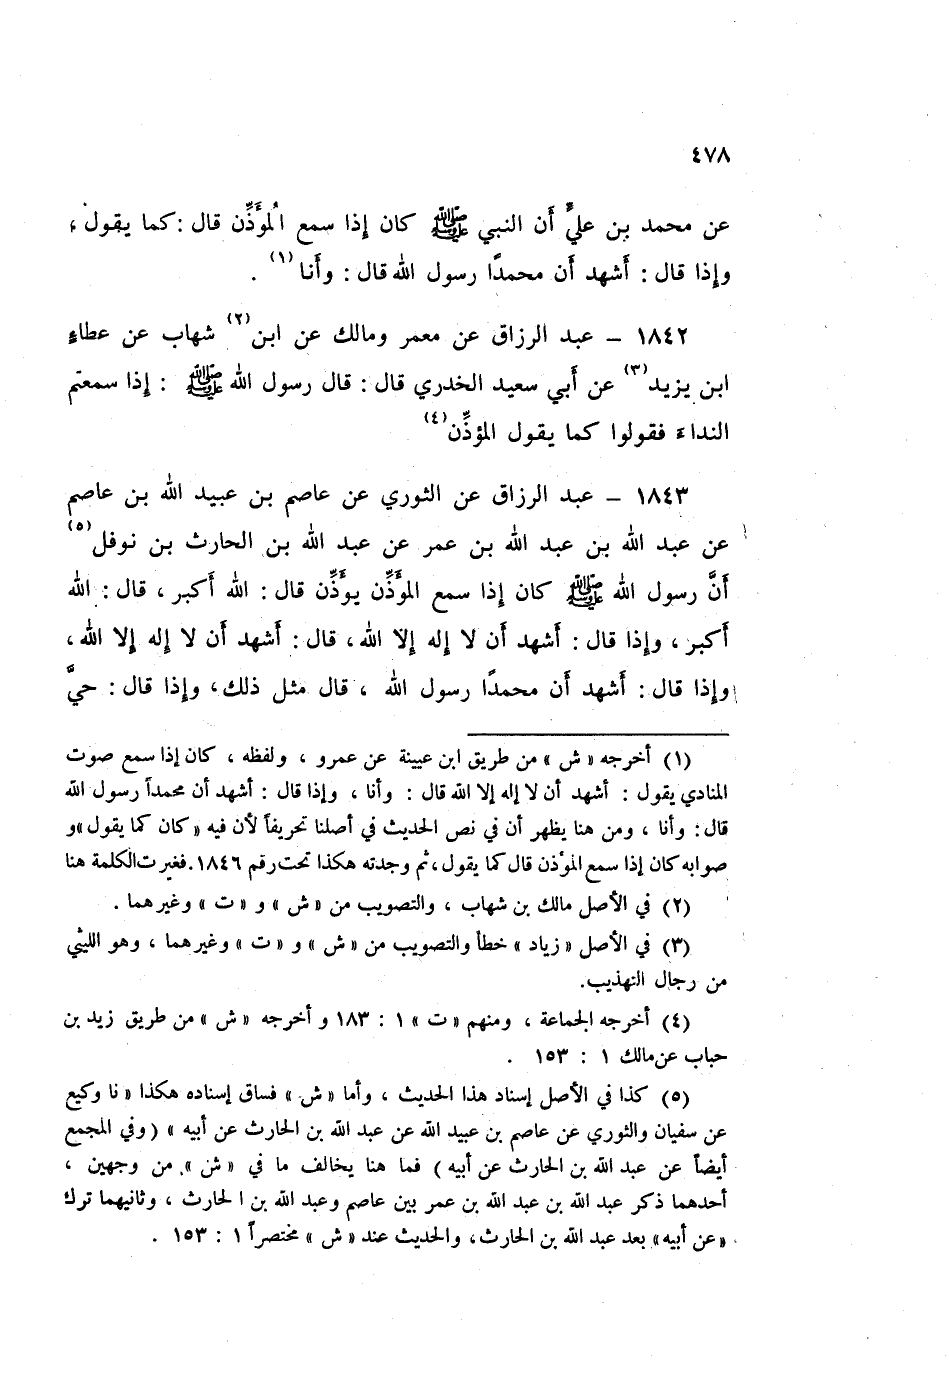 ٤٧٨
عن محمد بن عليٍّ أن النبي ﷺ كان إذا سمع المُؤَذِّن قال : كما يقول ،
وإذا قال : أَشهد أن محمدًا رسول الله قال : وأَنا (١) .
١٨٤٢ – عبد الرزاق عن معمر ومالك عن ابن (٢) شهاب عن عطاءِ
ابن يزيد (٣) عن أَبي سعيد الخدري قال : قال رسول الله ﷺ : إذا سمعتم
النداء فقولوا كما يقول المؤذِّن (٤)
١٨٤٣ – عبد الرزاق عن الثوري عن عاصم بن عبيد الله بن عاصم
عن عبد الله بن عبد الله بن عمر عن عبد الله بن الحارث بن نوفل (٥)
أَنَّ رسول الله ﷺ كان إذا سمع المؤَذِّن يؤَذِّن قال : الله أَكبر ، قال : الله
أَكبر ، وإذا قال : أَشهد أَن لا إله إلا الله ، قال : أَشهد أَن لا إله إلا الله ،
وإذا قال : أَشهد أَن محمدًا رسول الله ، قال مثل ذلك ، وإذا قال : حيَّ
(١) أخرجه « ش » من طريق ابن عيينة عن عمرو ، ولفظه ، كان إذا سمع صوت
المنادي يقول : أشهد أن لا إله إلا الله قال : وأنا ، وإذا قال : أشهد أن محمداً رسول الله
قال : وأنا ، ومن هنا يظهر أن في نص الحديث في أصلنا تحريفاً لأن فيه « كان كما يقول » و
صوابه كان إذا سمع المؤذن قال كما يقول ، ثم وجدته هكذا تحت رقم ١٨٤٦ . فغيرت الكلمة هنا
(٢) في الأصل مالك بن شهاب ، والتصويب من « ش » و « ت » وغيرهما .
(٣) في الأصل « زياد » خطأ والتصويب من « ش » و « ت » وغيرهما ، وهو الليثي
من رجال التهذيب .
(٤) أخرجه الجماعة ، ومنهم « ت » ١ : ١٨٣ و أخرجه « ش » من طريق زيد بن
حباب عن مالك ١ : ١٥٣ .
(٥) كذا في الأصل إسناد هذا الحديث ، وأما « ش » فساق إسناده هكذا « نا وكيع
عن سفيان والثوري عن عاصم بن عبيد الله عن عبد الله بن الحارث عن أبيه » ( وفي المجمع
أيضاً عن عبد الله بن الحارث عن أبيه ) فما هنا يخالف ما في « ش » من وجهين ،
أحدهما ذكر عبد الله بن عبد الله بن عمر بين عاصم وعبد الله بن الحارث ، وثانيهما ترك
« عن أبيه » بعد عبد الله بن الحارث ، والحديث عند « ش » مختصراً ١ : ١٥٣ .